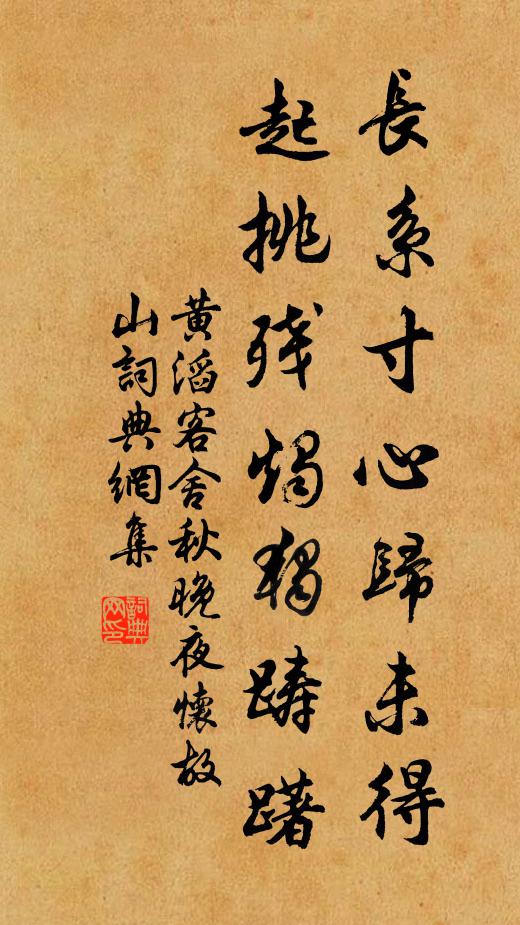 長系寸心歸未得
起挑残燭獨踌躇
黄滔客舍秋晚夜懷故
山詞典網集
詞典网印